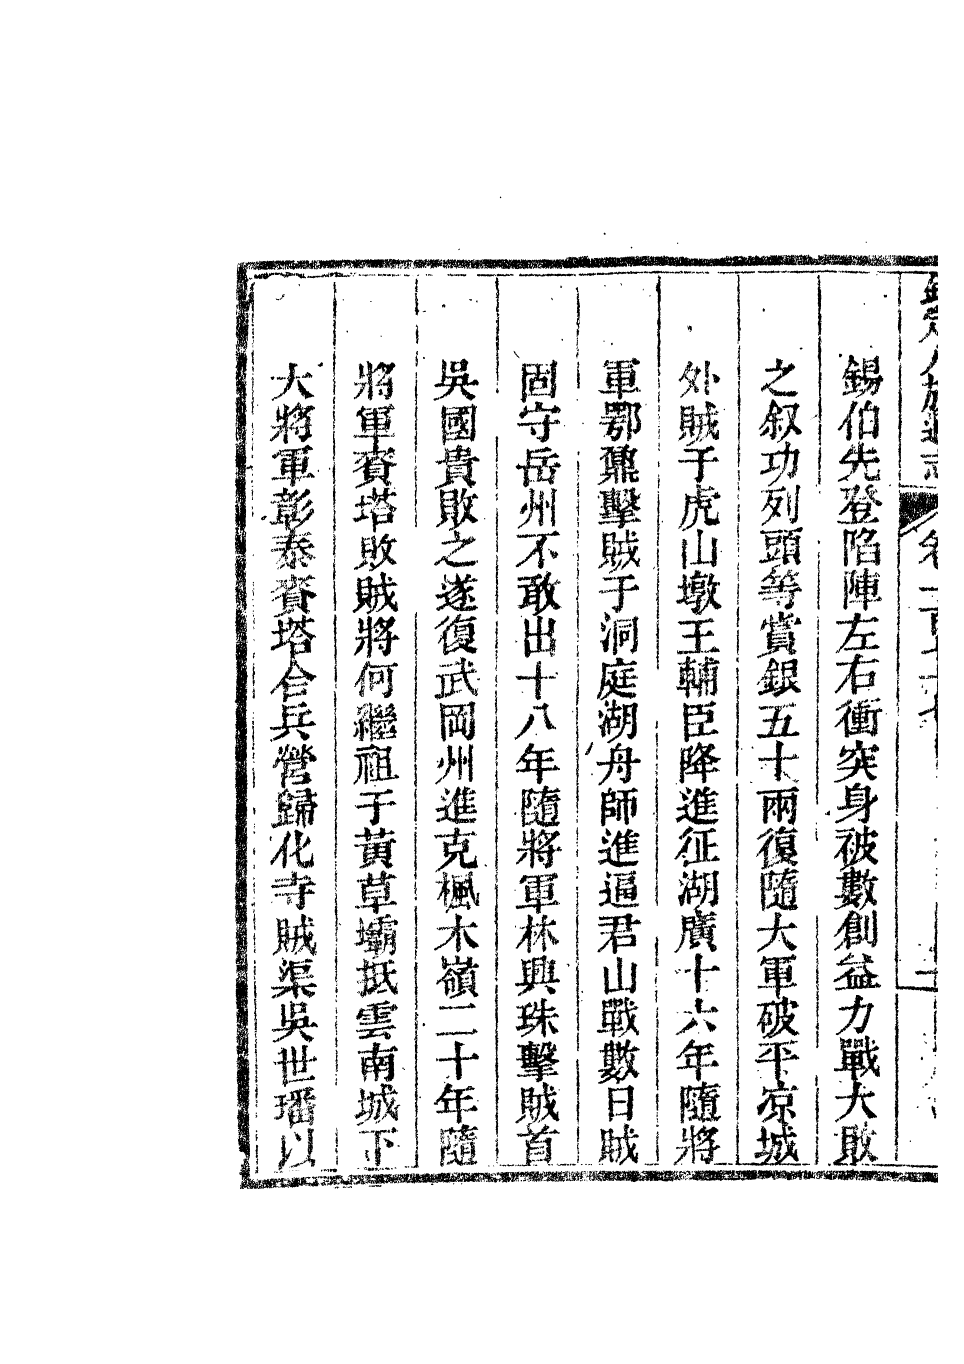 錫伯先登陷陣左右衝突身被數創益力戰大敗
之叙功列頭等賞銀五十兩復隨大軍破平凉城
外賊于虎山墩王輔臣降進征湖廣十六年隨將
軍鄂鼐擊賊于洞庭湖舟師進逼君山戰數日賊
固守岳州不敢出十八年隨將軍林興珠擊賊首
吳國貴敗之遂復武岡州進克楓木嶺二十年隨
將軍賚塔敗賊將何繼祖于黃草壩抵雲南城下
大將軍彰泰賚塔合兵營歸化寺賊渠吳世璠以